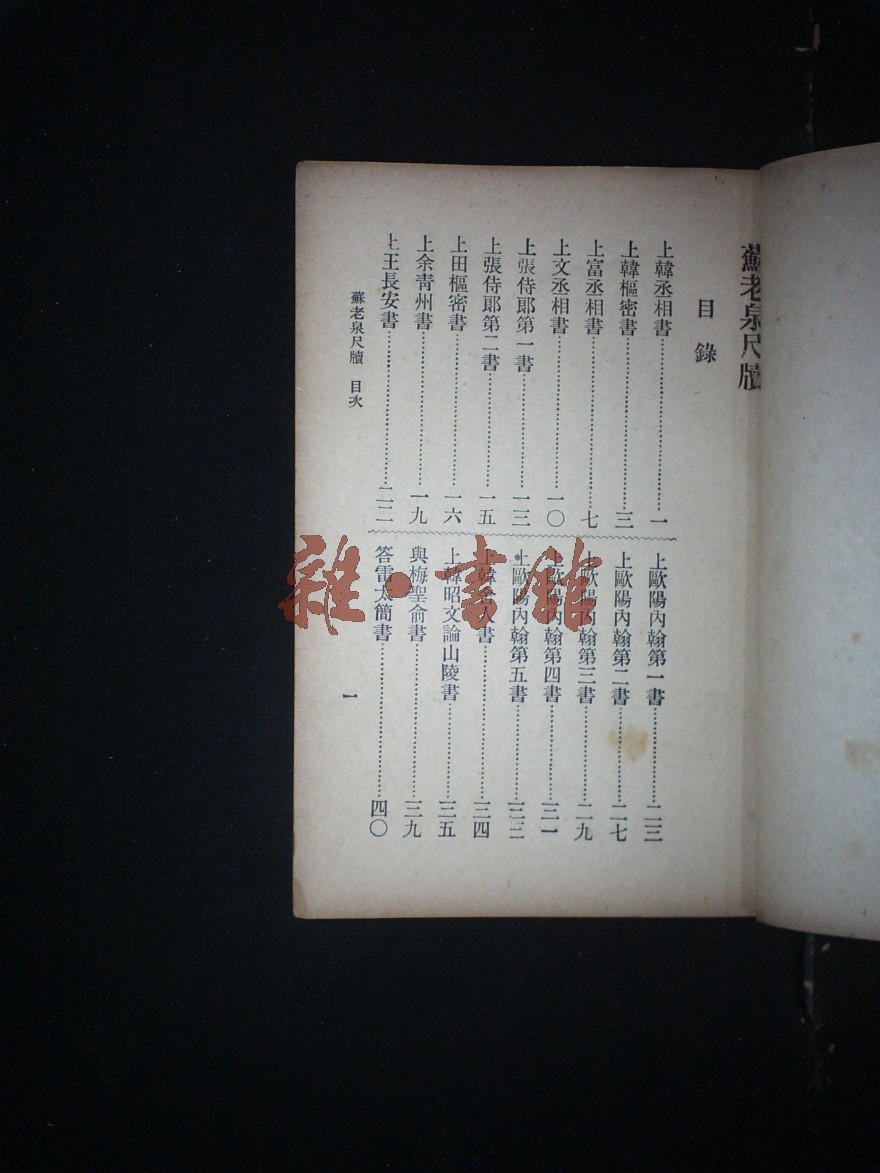 蘇老泉尺牘
目錄
上韓丞相書⋯⋯⋯⋯一
上韓樞密書⋯⋯⋯⋯三
上富丞相書⋯⋯⋯⋯七
上文丞相書⋯⋯⋯⋯一〇
上張侍郎第一書⋯⋯⋯⋯一三
上張侍郎第二書⋯⋯⋯⋯一五
上田樞密書⋯⋯⋯⋯一六
上余青州書⋯⋯⋯⋯一九
上王長安書⋯⋯⋯⋯二二
上歐陽內翰第一書⋯⋯⋯⋯二三
上歐陽內翰第二書⋯⋯⋯⋯二七
上歐陽內翰第三書⋯⋯⋯⋯二九
上歐陽內翰第四書⋯⋯⋯⋯三一
上歐陽內翰第五書⋯⋯⋯⋯三三
上韓人書⋯⋯⋯⋯三四
上韓昭文論山陵書⋯⋯⋯⋯三五
與梅聖俞書⋯⋯⋯⋯三九
答雷太簡書⋯⋯⋯⋯四〇
蘇老泉尺牘 目次
一
雜·書館